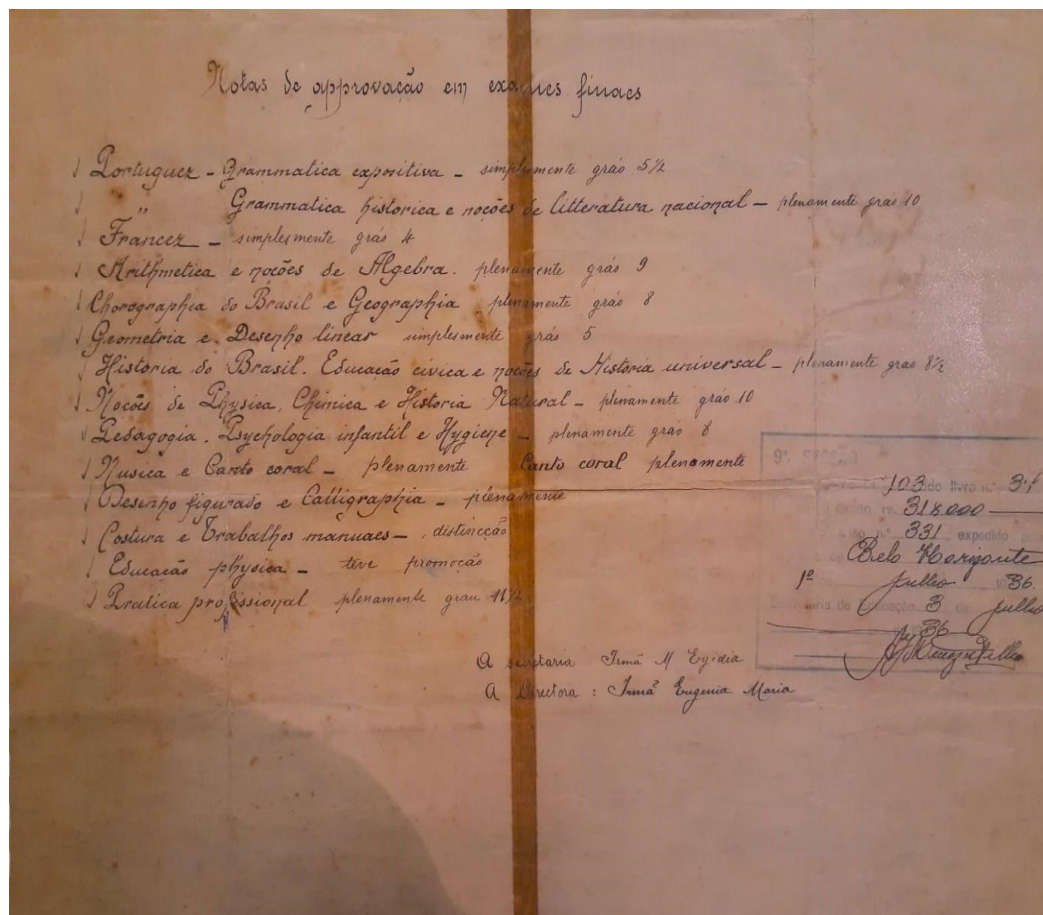 Notas de approvação em exames finaes
Portuguez - Grammatica expositiva - simplesmente gráo 5 1/2
" Grammatica historica e noções de litteratura nacional - plenamente gráo 10
Francez - simplesmente gráo 4
Arithmetica e noções de Algebra. plenamente gráo 9
Chorographia do Brasil e Geographia plenamente gráo 8
Geometria e Desenho linear simplesmente gráo 5
Historia do Brasil. Educação civica e noções de Historia universal - plenamente grao 8 1/2
Noções de Physica, Chimica e Historia Natural - plenamente gráo 10
Pedagogia. Psychologia infantil e Hygiene - plenamente gráo 8
Musica e Canto coral - plenamente Canto coral plenamente
Desenho figurado e Calligraphia - plenamente
Costura e Trabalhos manuaes - distincção
Educação physica - teve promoção
Pratica profissional plenamente grau 11 1/2
A secretaria Irmã M Egidia
A Directora : Irmã Eugenia Maria
9ª secção
103 do livro n.º
318.000
n.º 331 expedido
Belo Horizonte
1º julho 36.
Secretaria de Educação 3 de julho
36